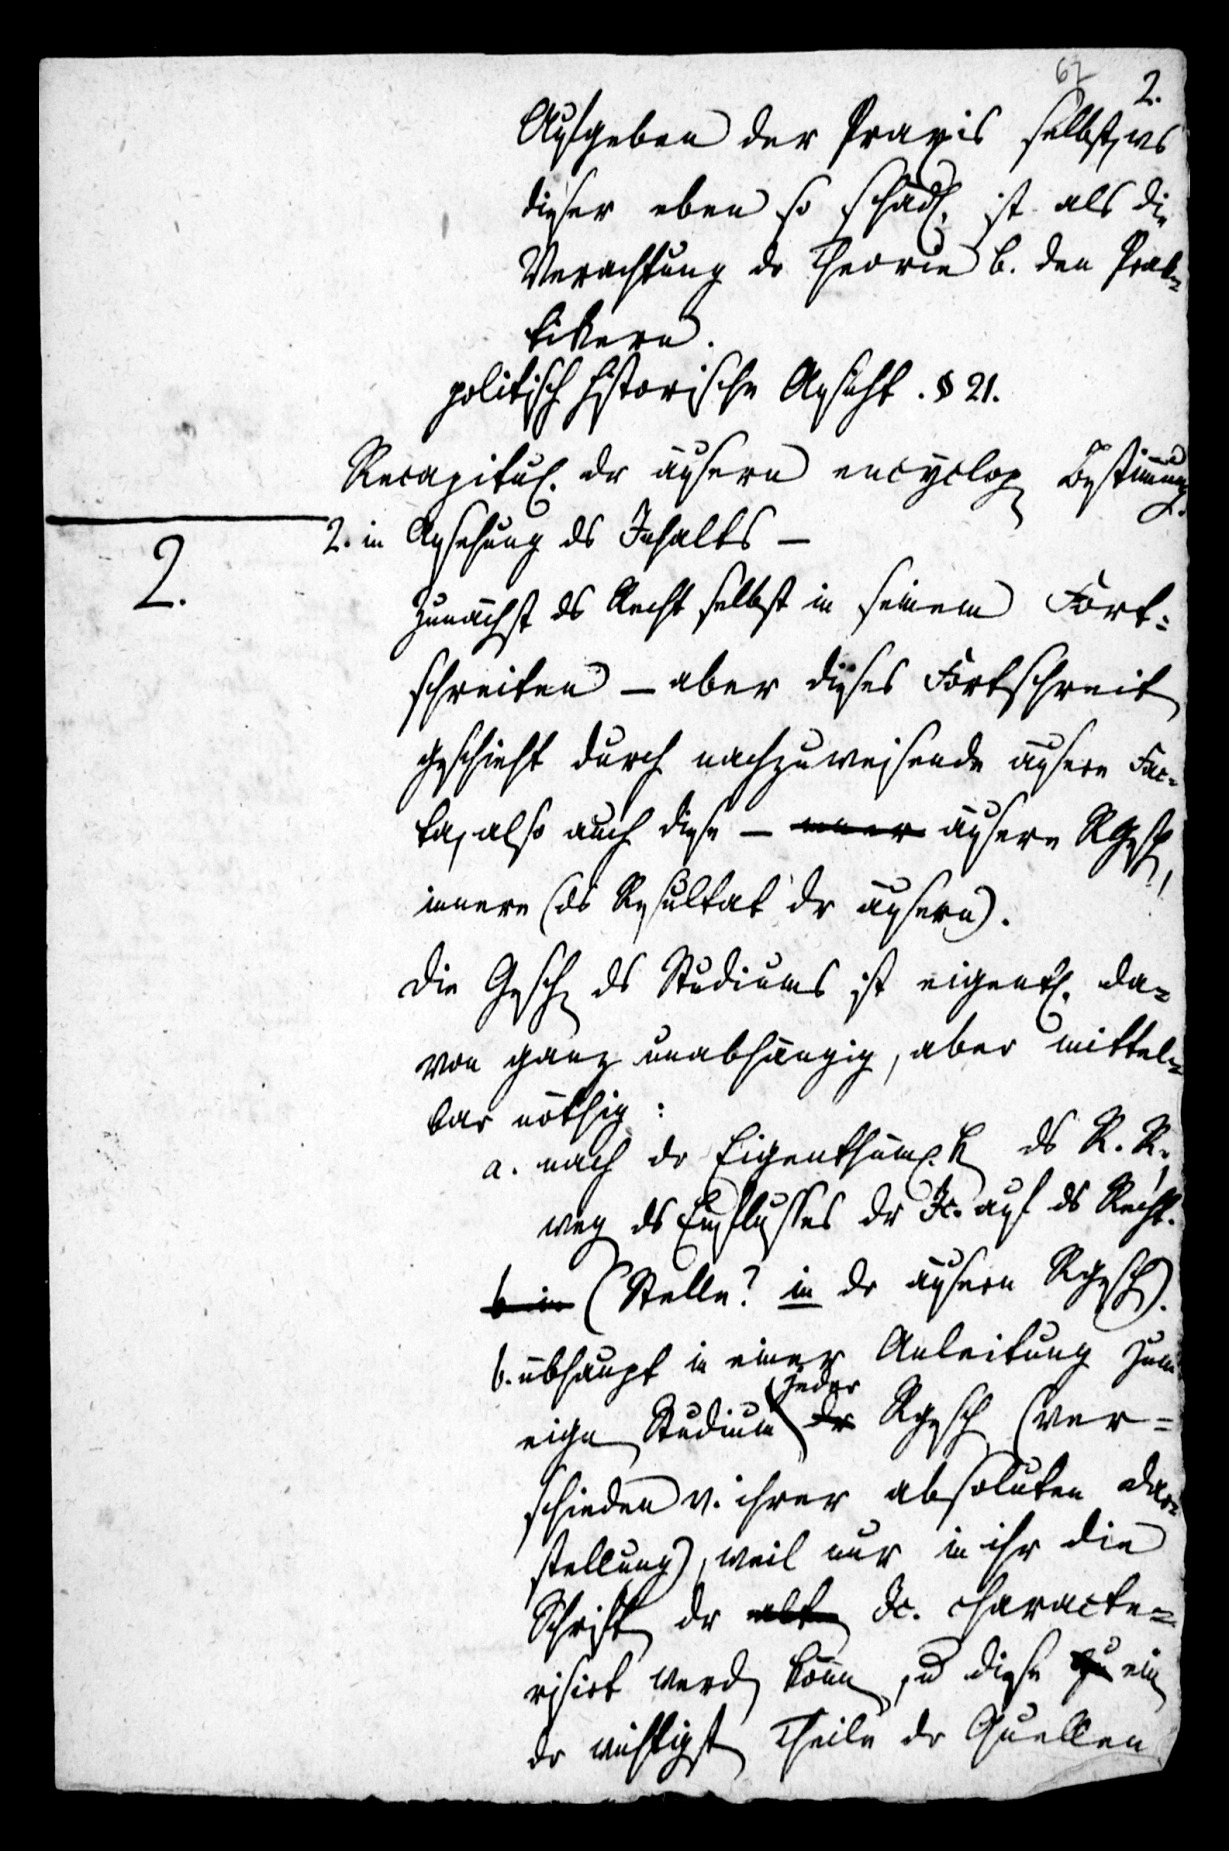 67 2.
Aufgeben der Praxis selbst, ws
dieser eben so schädl. ist als die
Verachtung dr Theorie b. den Prak-
tikern.
politisch historische Ansicht. § 21.
Recapitul. dr äusern encyclop Bestimmung.
2. 2. in Ansehung ds Inhalts —
Zunächst ds Recht selbst in seinem Fort-
schreiten — aber dieses Fortschreit
geschieht durch nachzuweisende äusere Fac-
ta, also auch diese — äusere RGesch,
innere (ds Resultat dr äusern).
Die Gesch ds Studiums ist eigentl. da-
von ganz unabhängig, aber mittel-
bar nöthig:
a. nach dr Eigenthüml.k ds R. R.,
weg ds Einflusses dr Jc. auf ds Recht.
b in (Stelle? in dr äusern RGesch).
b. übhaupt in einer Anleitung zum
eign Studium dr jeder RGesch (ver-
schieden v. ihrer absoluten Dar-
stellung), weil nur in ihr die
Schrift dr alten Jc. characte-
risirt werd könn, u diese zu ein
dr wichtigst Theile dr Quellen